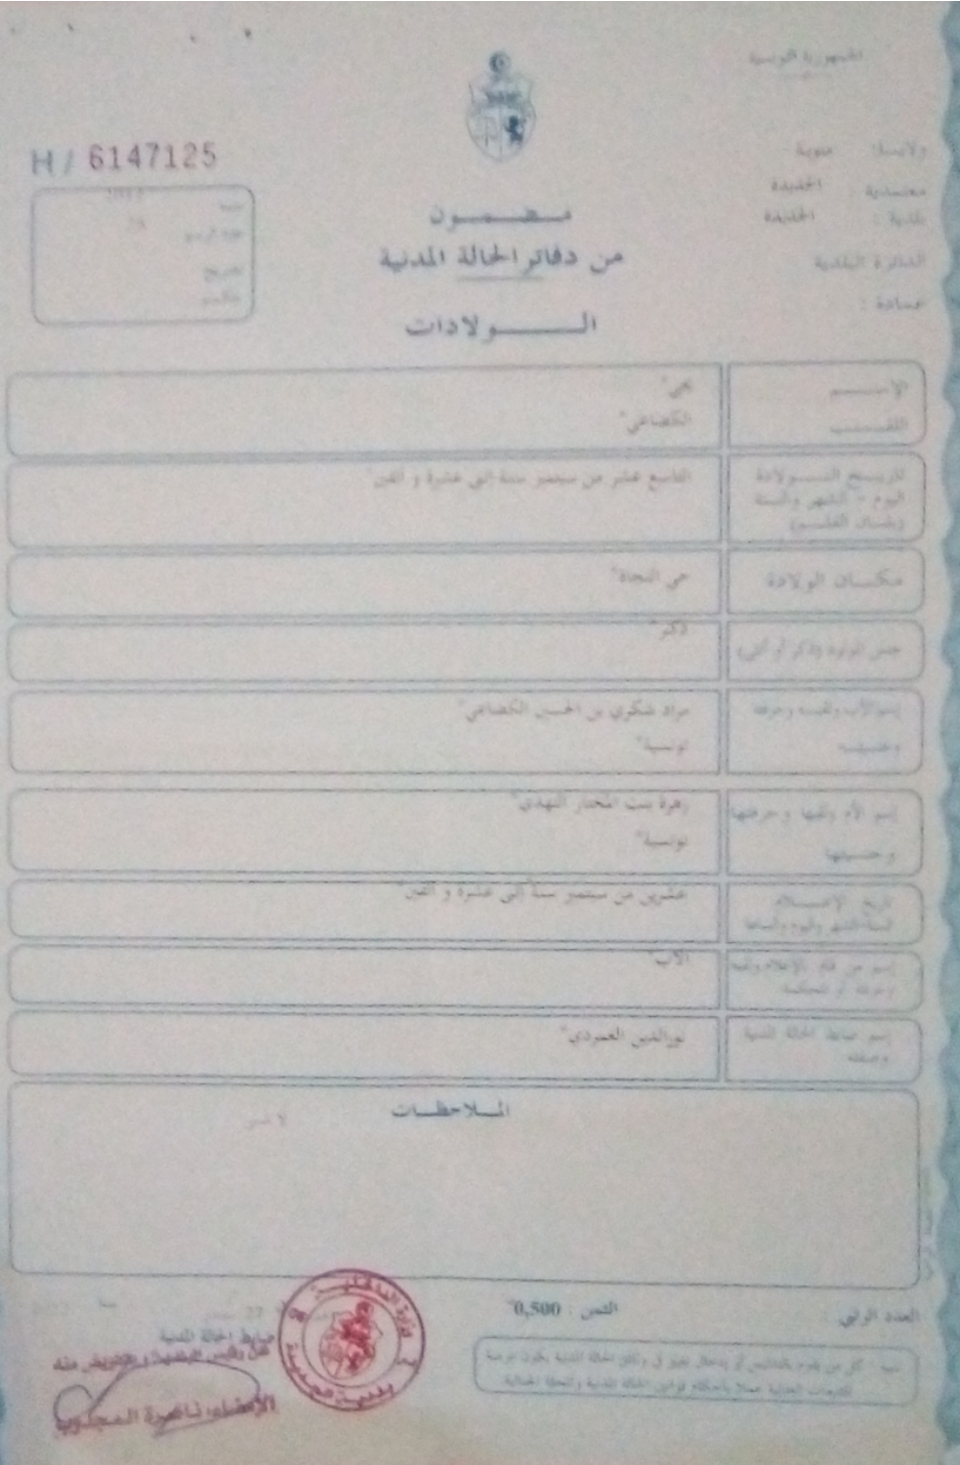 الجمهورية التونسية
H / 6147125
ولاية: منوبة
معتمدية : الجديدة
بلدية : الجديدة
الدائرة البلدية
عمادة :
سنة
عدد الرسم
مضمون
من دفاتر الحالة المدنية
الولادات
الإسم
يحي"
اللقب
الكضاعي"
تاريخ الولادة
اليوم - الشهر والسنة
(بلسان القلم)
التاسع عشر من سبتمبر سنة إثني عشرة و ألفين"
مكان الولادة
حي النجاة"
جنس المولود (ذكر أو أنثى)
ذكر"
إسم الأب ولقبه وحرفته
وجنسيته
مراد شكري بن الحسين الكضاعي"
تونسية"
إسم الأم ولقبها وحرفتها
وجنسيتها
زهرة بنت المختار النهدي"
تونسية"
تاريخ الإعلام
السنة الشهر واليوم والساعة
عشرين من سبتمبر سنة إثني عشرة و ألفين"
إسم من قام بالإعلام ولقبه
وحرفته أو المحكمة
الأب"
إسم ضابط الحالة المدنية
وصفته
نورالدين العمودي"
الملاحظات
لا شيء
العدد الرتبي :
الثمن : 0,500
ضابط الحالة المدنية
عن رئيس البلدية و بتفويض منه
الإمضاء:
وزارة الداخلية
بلدية الجديدة